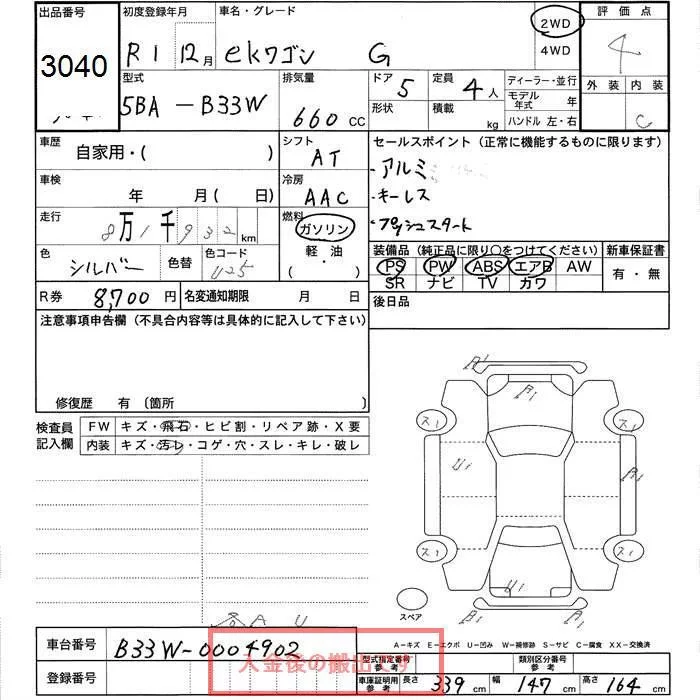 出品番号
3040
初度登録年月
R1 12月
車名・グレード
ekワゴン G
2WD
4WD
評価点
4
外装 内装
C
型式
5BA-B33W
排気量
660 CC
ドア 5
形状
定員 4人
積載 kg
ディーラー・並行
モデル年式 年
ハンドル 左・右
車歴
自家用・( )
シフト
AT
セールスポイント(正常に機能するものに限ります)
・アルミ
・キーレス
・プッシュスタート
車検
年 月( 日)
冷房
AAC
走行
8万1千932km
燃料
ガソリン
軽・油
( ・ )
色
シルバー
色替
色コード
U25
装備品(純正品に限り○をつけてください)
PS PW ABS エアB AW
SR ナビ TV カワ
新車保証書
有・無
R券 8,700円
名変通知期限 月 日
後日品
注意事項申告欄(不具合内容等は具体的に記入して下さい)
修復歴 有〔箇所 〕
検査員記入欄
FW キズ・飛石・ヒビ割・リペア跡・X要
内装 キズ・汚レ・コゲ・穴・スレ・キレ・破レ
スペア
A-キズ E-エクボ U-凹み W-補修跡 S-サビ C-腐食 XX-交換済
車台番号
B33W-0004902
入金後の搬出です
登録番号
型式指定番号
参考
類別区分番号
参考
車庫証明用
参考
長さ 339cm
幅 147cm
高さ 164cm